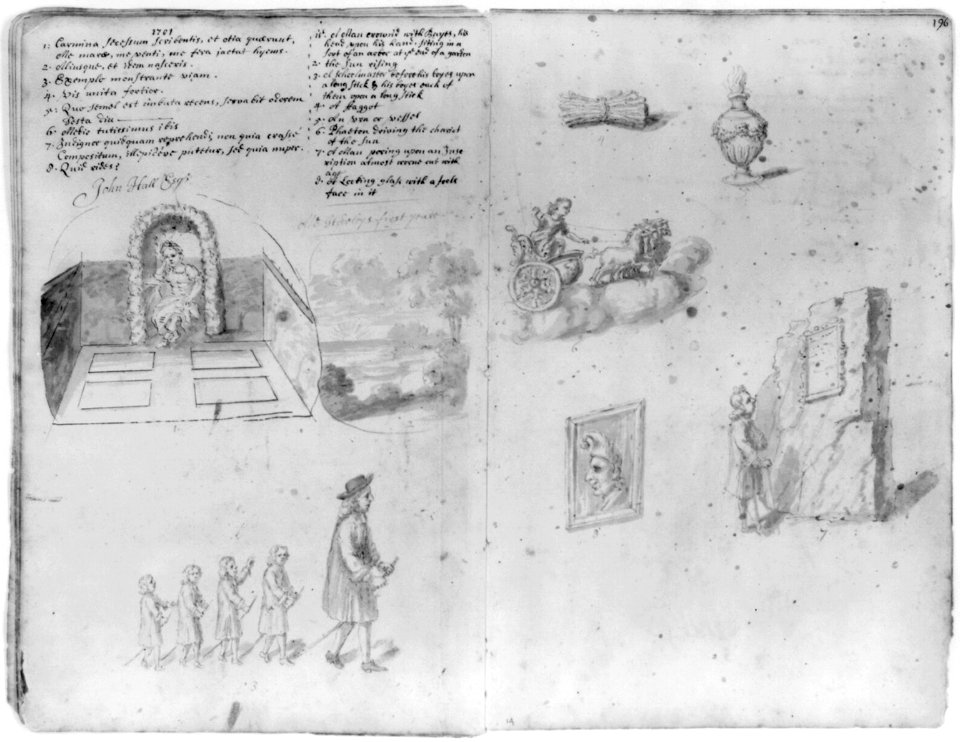 1701
1. Carmina secessum scribentis, et otia quærunt,
Me mare, me venti, me fera jactat hyems.
2. Aliusque, et Idem nasceris.
3. Exemplo monstrante viam.
4. Vis unita fortior.
5. Quo semel est imbuta recens, servabit odorem
Testa diu
6. Medio tutissimus ibis
7. Indignor quidquam reprehendi; non quia crasse
Compositum, illepidéve putetur, sed quia nuper.
8. Quid rides?
John Hall Esqr.
A Man crownd with Bayes, his
head upon his hand, sitting in a
sort of an arbor at ye end of a garden
2. The sun rising
3. A Schoolmaster before his boyes upon
a long stick & his boyes each of
them upon a long stick
4. A faggot
5. An vrn or vessel
6. Phaeton driving the chariot
of the sun
7. A Man poring upon an Insc
ription almost worne out with
age
8. A Looking glass with a fools
face in it
196
3
7